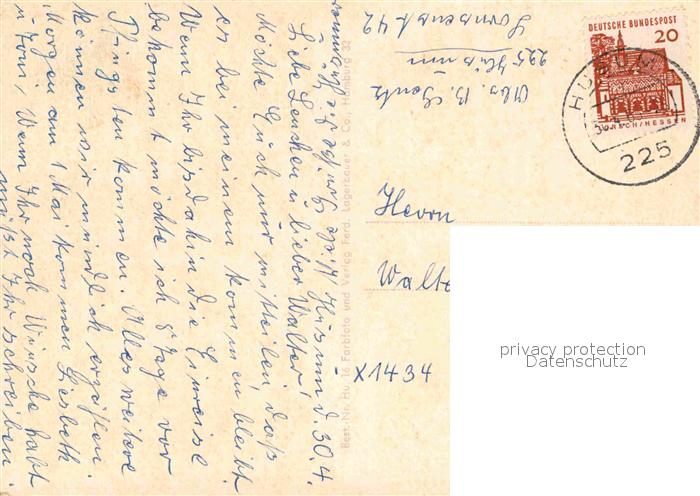 Husum d. 30.4.
Liebe Lenchen u lieber Walter!
Möchte Euch nur mitteilen, daß
es bei meinem kommen bleibt
Wenn Ihr bis dahin die Einreise
bekommt möchte ich 8 Tage vor
Pfingsten kommen. Alles weitere
können wir mündlich
Morgen am 1 Mai kommen Liesbeth
u Toni, Wenn Ihr noch Wünsche habt
müßt Ihr schreiben.
Abs. B.
225 Husum
42
DEUTSCHE BUNDESPOST
20
LORSCH/HESSEN
HUSUM
225
Herrn
Walte
X1434
Best. Nr. Hu 16 Farbfoto und Verlag Ferd. Lagerbauer & Co., Hamburg 32
privacy protection
Datenschutz